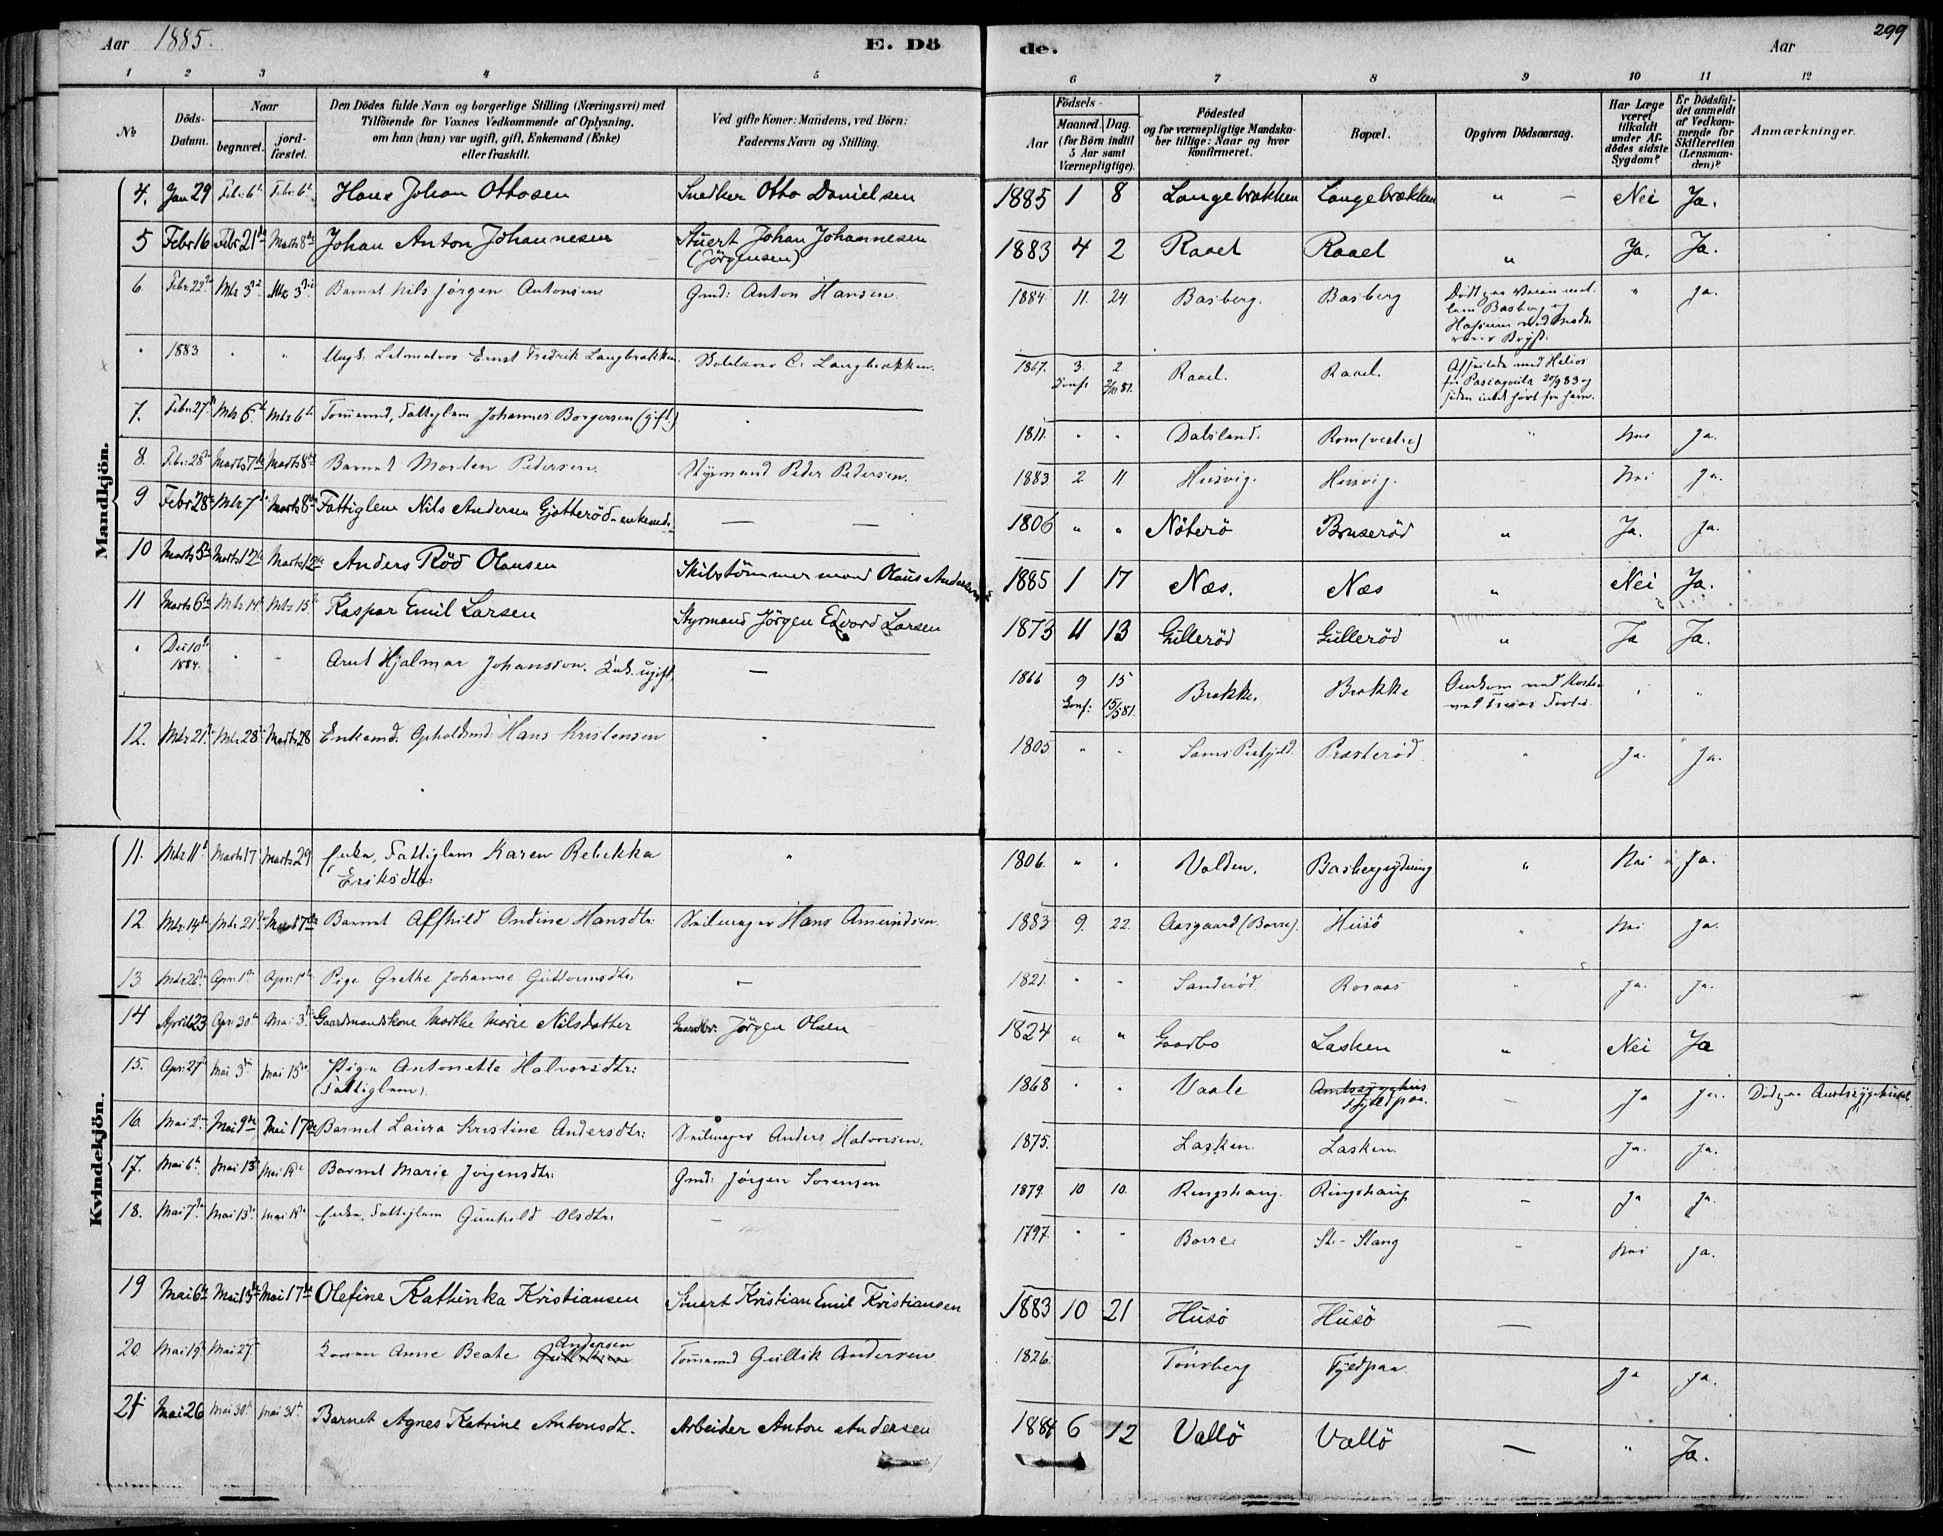 Aar 1885. E. Dö de. Aar 299
1 2 3 4 5 6 7 8 9 10 11 12
No Döds-Datum. Naar begravet. jord-fæstet. Den Dödes fulde Navn og borgerlige Stilling (Næringsvei) med Tilföiende for Voxnes Vedkommende af Oplysning, om han (hun) var ugift, gift, Enkemand (Enke) eller fraskilt. Ved gifte Koner: Mandens, ved Börn: Faderens Navn og Stilling. Födsels- Aar Maaned. Dag. (for Börn indtil 5 Aar samt Værnepligtige). Födested og for værnepligtige Mandskaber tillige: Naar og hvor konfirmeret. Bopæl. Opgiven Dödsaarsag. Har Læge været tilkaldt under Afdödes sidste Sygdom? Er Dödsfaldet anmeldt af Vedkommende for Skifteretten (Lensmanden)? Anmærkninger.
Mandkjön.
4. Jan 29 Febr. 6 Febr. 6 Hans Johan Ottosen Snedker Otto Danielsen 1885 1 8 Langebrækken Langebrækken " Nei Ja.
5 Febr 16 Febr 21 Marts 8 Johan Anton Johannesen Stuert Johan Johannesen (Jörgensen) 1883 4 2 Raael Raael " Ja. Ja.
6. Febr. 22 Mts 3 Mts 3 Barnet Nils Jörgen Antonsen Gmd: Anton Hansen. 1884 11. 24 Basberg. Basberg " Ja.
" 1883 " " Ungk. Letmatros Ernst Fredrik Langbrækken. C. Langbrækken. 1867. 3. 2 Konf. Raael. Raael. Afseilede med Helios fra Pascagoula 20/9 83 og siden intet hört fra ham.
7. Febr 27 Mts 6 Mts 6 Tömmermd, Fattiglem Johannes Borgersen (gift) " 1811. " " Dalsland. Rom (vestre) " Nei Ja.
8. Febr. 28 Marts 7 Marts 8 Barnet Morten Pedersen. Styrmand Peder Pedersen. 1883. 2 11 Husvig. Husvig. Nei Ja.
9 Febr 28 Mts 7 Marts 8 Fattiglem Nils Andersen Gjotteröd - enkemd. — — 1806 " " Nöterö Bruseröd " Ja. Ja.
10 Marts 5 Marts 12 Marts 12 Anders Röd Olausen Skibstömmermand Olaus Andersen 1885 1 17 Næs. Næs " Nei Ja.
11 Marts 6 Mts 14 Mts 15 Kaspar Emil Larsen Styrmand Jörgen Edvard Larsen 1873 11 13 Gilleröd Gilleröd " Ja Ja.
" Des 10 1884. " " Arnt Hjalmar Johansson. ugift. — 1866 9 15 Konf: 15/5 81. Brække. Brække " "
12. Mts 21 Mts 28 Marts 28 Enkemd. Opholdsmd. Hans Kristensen " 1805 " " Sams Prestgjeld. Præsteröd. " Ja. Ja.
Kvindekjön.
11. Mts 11 Marts 17 Marts 29 Enke, Fattiglem Karen Rebekka Eriksdtr: " 1806. " " Valden. Basbergrydning " Nei Ja.
12 Mts 14 Mts 21 17 Barnet Alfhild Ondine Hansdtr: Seilmager Hans Amundsen. 1883 9. 22. Aasgaard (Borre). Husö " Nei Ja.
13. Mts 26 Apr. 1 Apr. 1 Pige Grethe Johanne Guttormsdtr: — 1821. " " Sanderöd. Roraas " Ja. Ja.
14 April 23 Apr 30 Mai 3 Gaardmandskone Marthe Marie Nilsdatter Gaardbr: Jörgen Olsen 1824 " " Gaarbo Lasken " Nei Ja
15. Apr. 27 Mai 3 Mai 15 Pige Antonette Halvorsdtr: (Fattiglem). 1868 " " Vaale Amtssygehus Fjeldpaa. — Ja Ja. Död paa Amtssygehuset.
16. Mai 2 Mai 9 Mai 17 Barnet Laura Kristine Andersdtr: Seilmager Anders Halvorsen. 1875. Lasken. Lasken. Ja. Ja.
17. Mai 6 Mai 13 Mai 19 Barnet Marie Jörgensdtr: Gmd: Jörgen Sörensen 1879. 10 10. Ringshaug. Ringshaug — Ja Ja.
18. Mai 7 Mai 13 Mai 19 Enke, Fattiglem Gunhild Olsdtr: — 1797. " " Borre St. Slang — Nei Ja.
19 Mai 6 Mai 13 Mai 17 Olefine Kathinka Kristiansen Stuert Kristian Emil Kristiansen 1883 10 21 Husö Husö —
20 Mai 19 Mai 27 Konen Anne Beate Andersen Tömmermd Gullik Andersen 1826. Tönsberg Fjeldpaa Ja Ja.
21 Mai 26 Mai 30 Mai 31 Barnet Agnes Katrine Antonsdt. Arbeider Anton Andersen 1884 6 12 Vallö Vallö — " Ja.